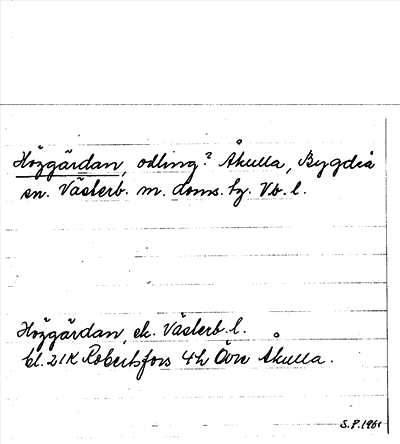 Höggärdan, odling? Åkulla, Bygdeå
sn. Västerb. m. doms. hg. Vb. l.
Höggärdan, ek. Västerb. l.
bl. 21K Robertsfors 4h Övre Åkulla.
S.P. 1961